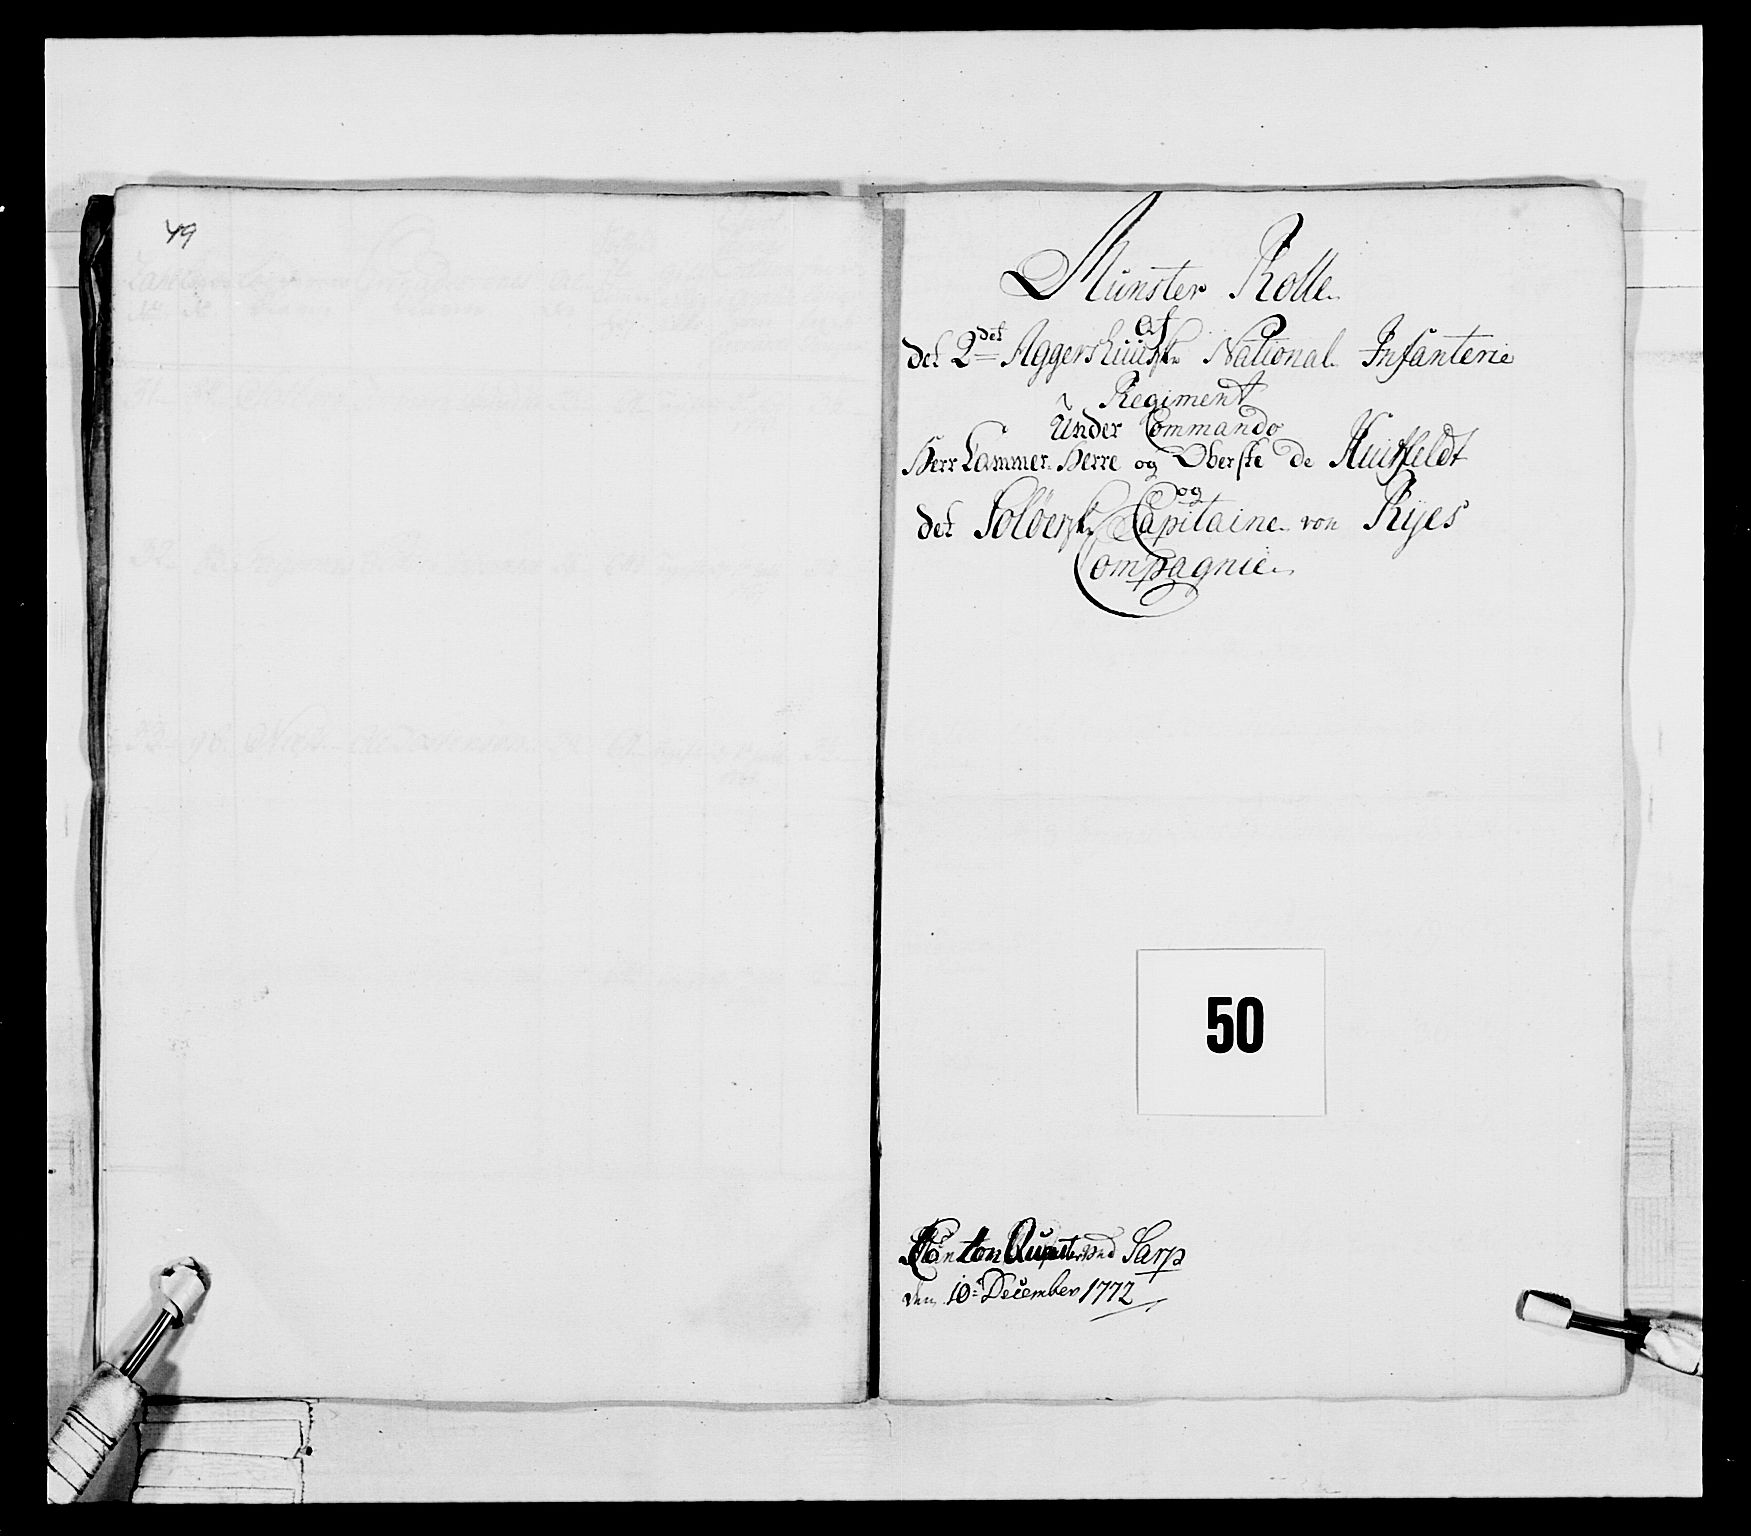 49
Munster Rolle
af
det 2det Aggershuusske National Infanterie
Regiment
Under Commando
Herr Cammer Herre og Oberste de Huitfeldt
og
det Solöerske Capitaine von Ryes
Compagnie
50
Canton Quarteret ved Sarp
den 10= December 1772